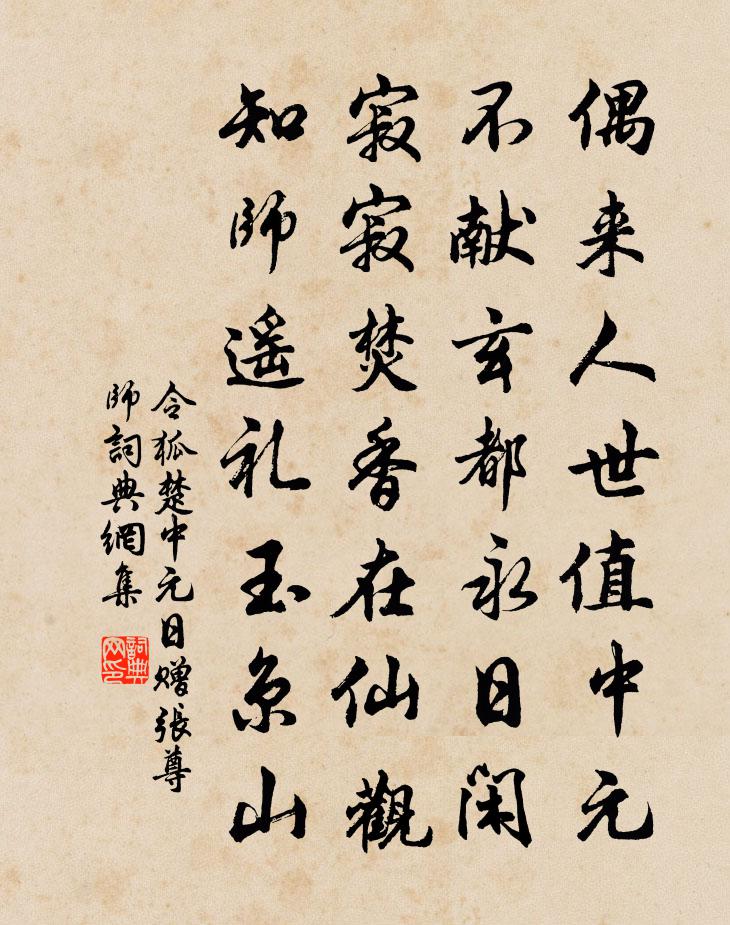 偶来人世值中元
不献玄都永日闲
寂寂焚香在仙觀
知師遥礼玉京山
令狐楚中元日赠張尊
師詞典網集
詞典
网印